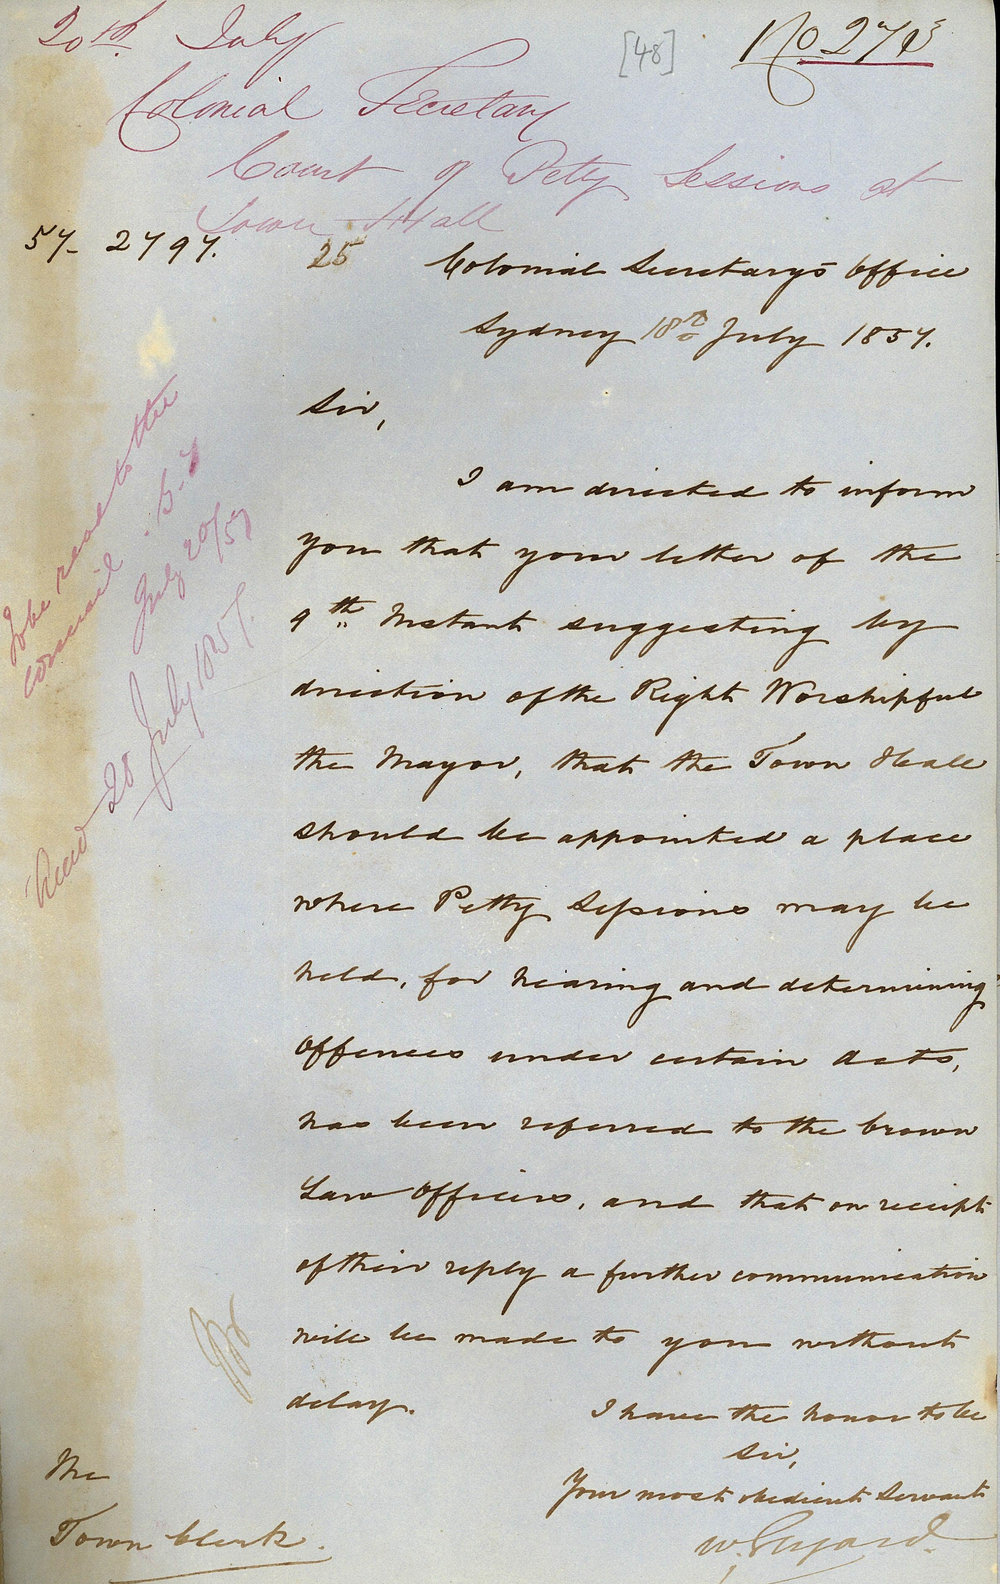 20th July
[48]
No 273
Colonial Secretary
Court of Petty Sessions at
Town Hall
57-2797.
25
Colonial Secretary's Office
Sydney 18th July 1857.
Sir,
I am directed to inform
you that your letter of the
9th Instant suggesting by
direction of the Right Worshipful
the Mayor, that the Town Hall
should be appointed a place
where Petty Sessions may be
held, for hearing and determining
Offences under certain Acts,
has been referred to the Crown
Law Officers, and that on receipt
of their reply a further communication
will be made to you without
delay.
I have the honor to be
Sir,
Your most obedient Servant
W.
The
Town Clerk.
To be read to the
council
July 20/57
Recd 20 July 1857.